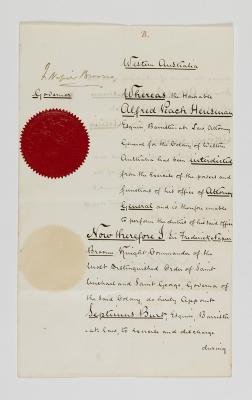 B.
Western Australia
F. Napier Broome
Governor
Whereas the Honorable
Alfred Peach Hensman
Esquire Barrister at Law, Attorney
General for the Colony of Western
Australia has been interdicted
from the exercise of the powers and
functions of his office of Attorney
General and is therefore unable
to perform the duties of his said office
Now therefore I Sir Frederick Napier
Broome Knight Commander of the
Most Distinguished Order of Saint
Michael and Saint George, Governor of
the said Colony, do hereby appoint
Septimus Burt, Esquire, Barrister
at Law, to exercise and discharge
during